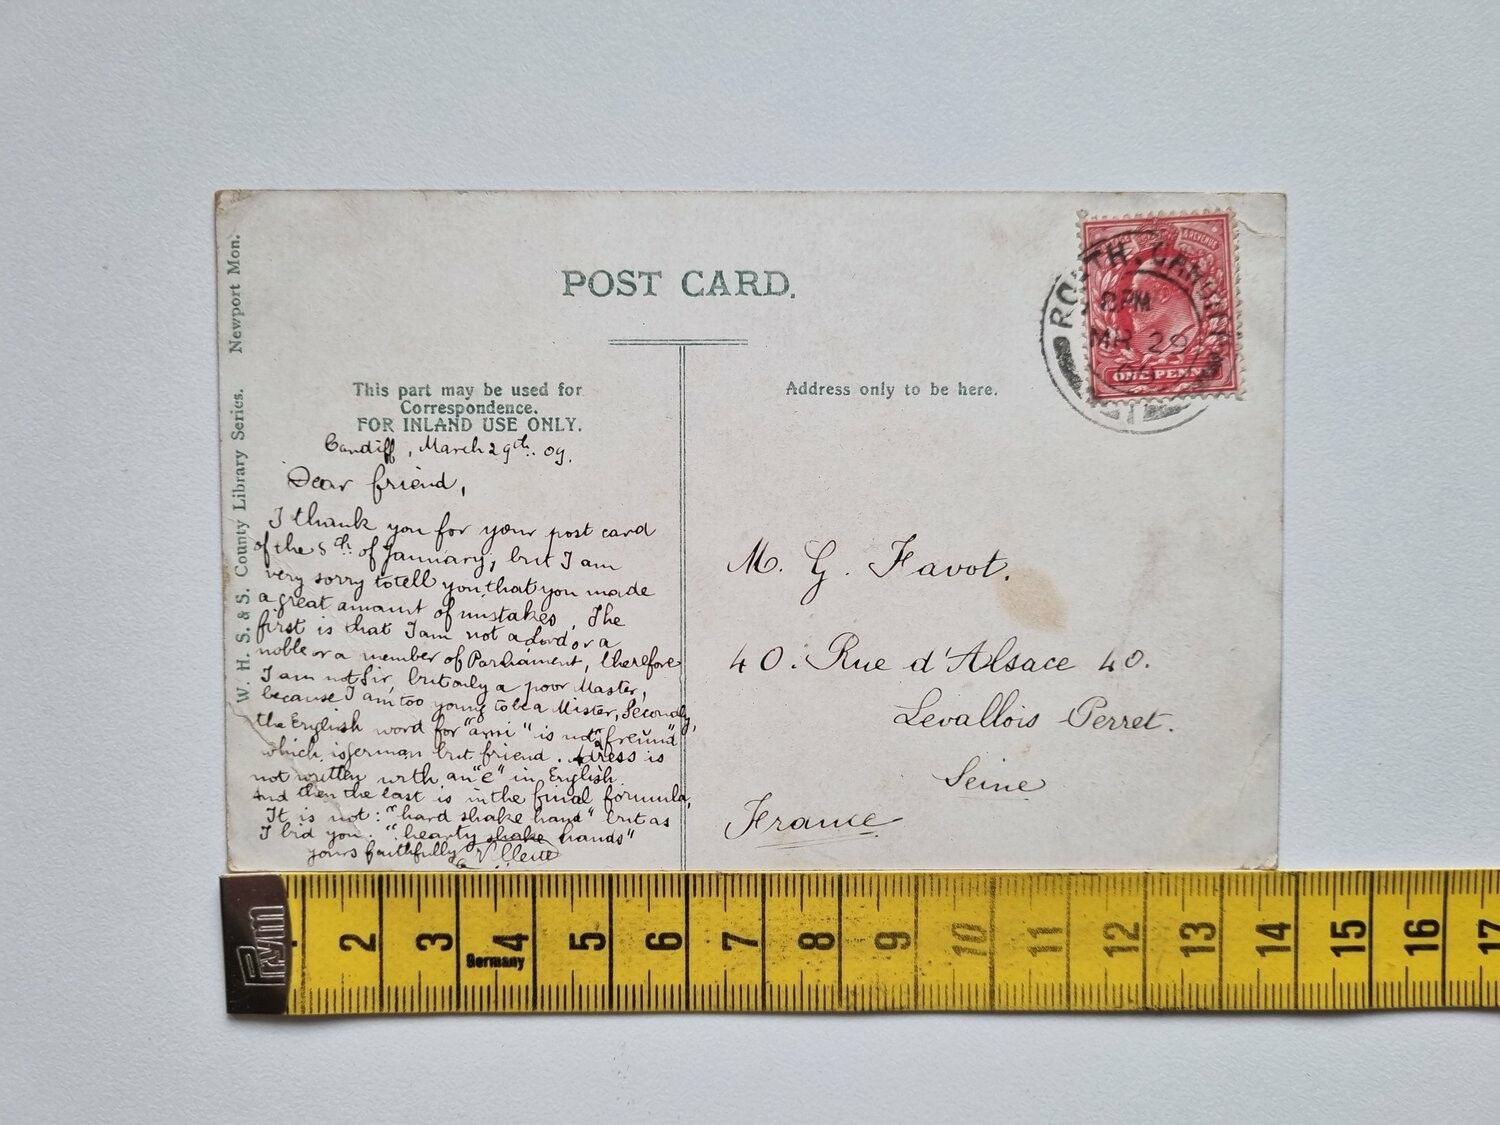 POST CARD.
W. H. S. & S. County Library Series. Newport Mon.
This part may be used for
Correspondence.
FOR INLAND USE ONLY.
Address only to be here.
ROATH. CARDIFF
8 PM
MR 29
ONE PENNY
Cardiff, March 29th. 09.
Dear friend,
I thank you for your post card
of the 5th of January, but I am
very sorry to tell you, that you made
a great amount of mistakes. The
first is that I am not a Lord or a
noble or a member of Parliament, therefore
I am not Sir, but only a poor Master,
because I am too young to be a Mister, Secondly,
the English word for "ami" is not "freund"
which is german but friend. Adress is
not written with an "e" in English.
And then the last is in the final formula,
It is not: "hard shake hand" but as
I bid you: "hearty shake hands"
yours faithfully
M. G. Favot.
40. Rue d'Alsace 40.
Levallois-Perret.
Seine
France
Prym
2 3 4 5 6 7 8 9 10 11 12 13 14 15 16 17
Germany